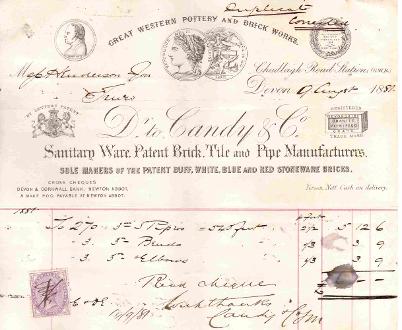 Duplicate
Corrected
GREAT WESTERN POTTERY AND BRICK WORKS.
Chudleigh Road Station, G.W.R.
Devon 9 August 1881
Truro
BY LETTERS PATENT
REGISTERED
TRADE MARK
Dr. to Candy & Co.
Sanitary Ware, Patent Brick, Tile and Pipe Manufacturers.
SOLE MAKERS OF THE PATENT BUFF, WHITE, BLUE AND RED STONEWARE BRICKS.
CROSS CHEQUES
DEVON & CORNWALL BANK, NEWTON ABBOT,
& MAKE P.O.O. PAYABLE AT NEWTON ABBOT.
Terms, Nett Cash on delivery.
1881
To 270 5 in Pipes = 540 feet 5 12 6
3 5 in Bends 1/3 3 9
3 5 in Elbows 1/3 3 9
Recd cheque
E & O E. with thanks
Candy & Co